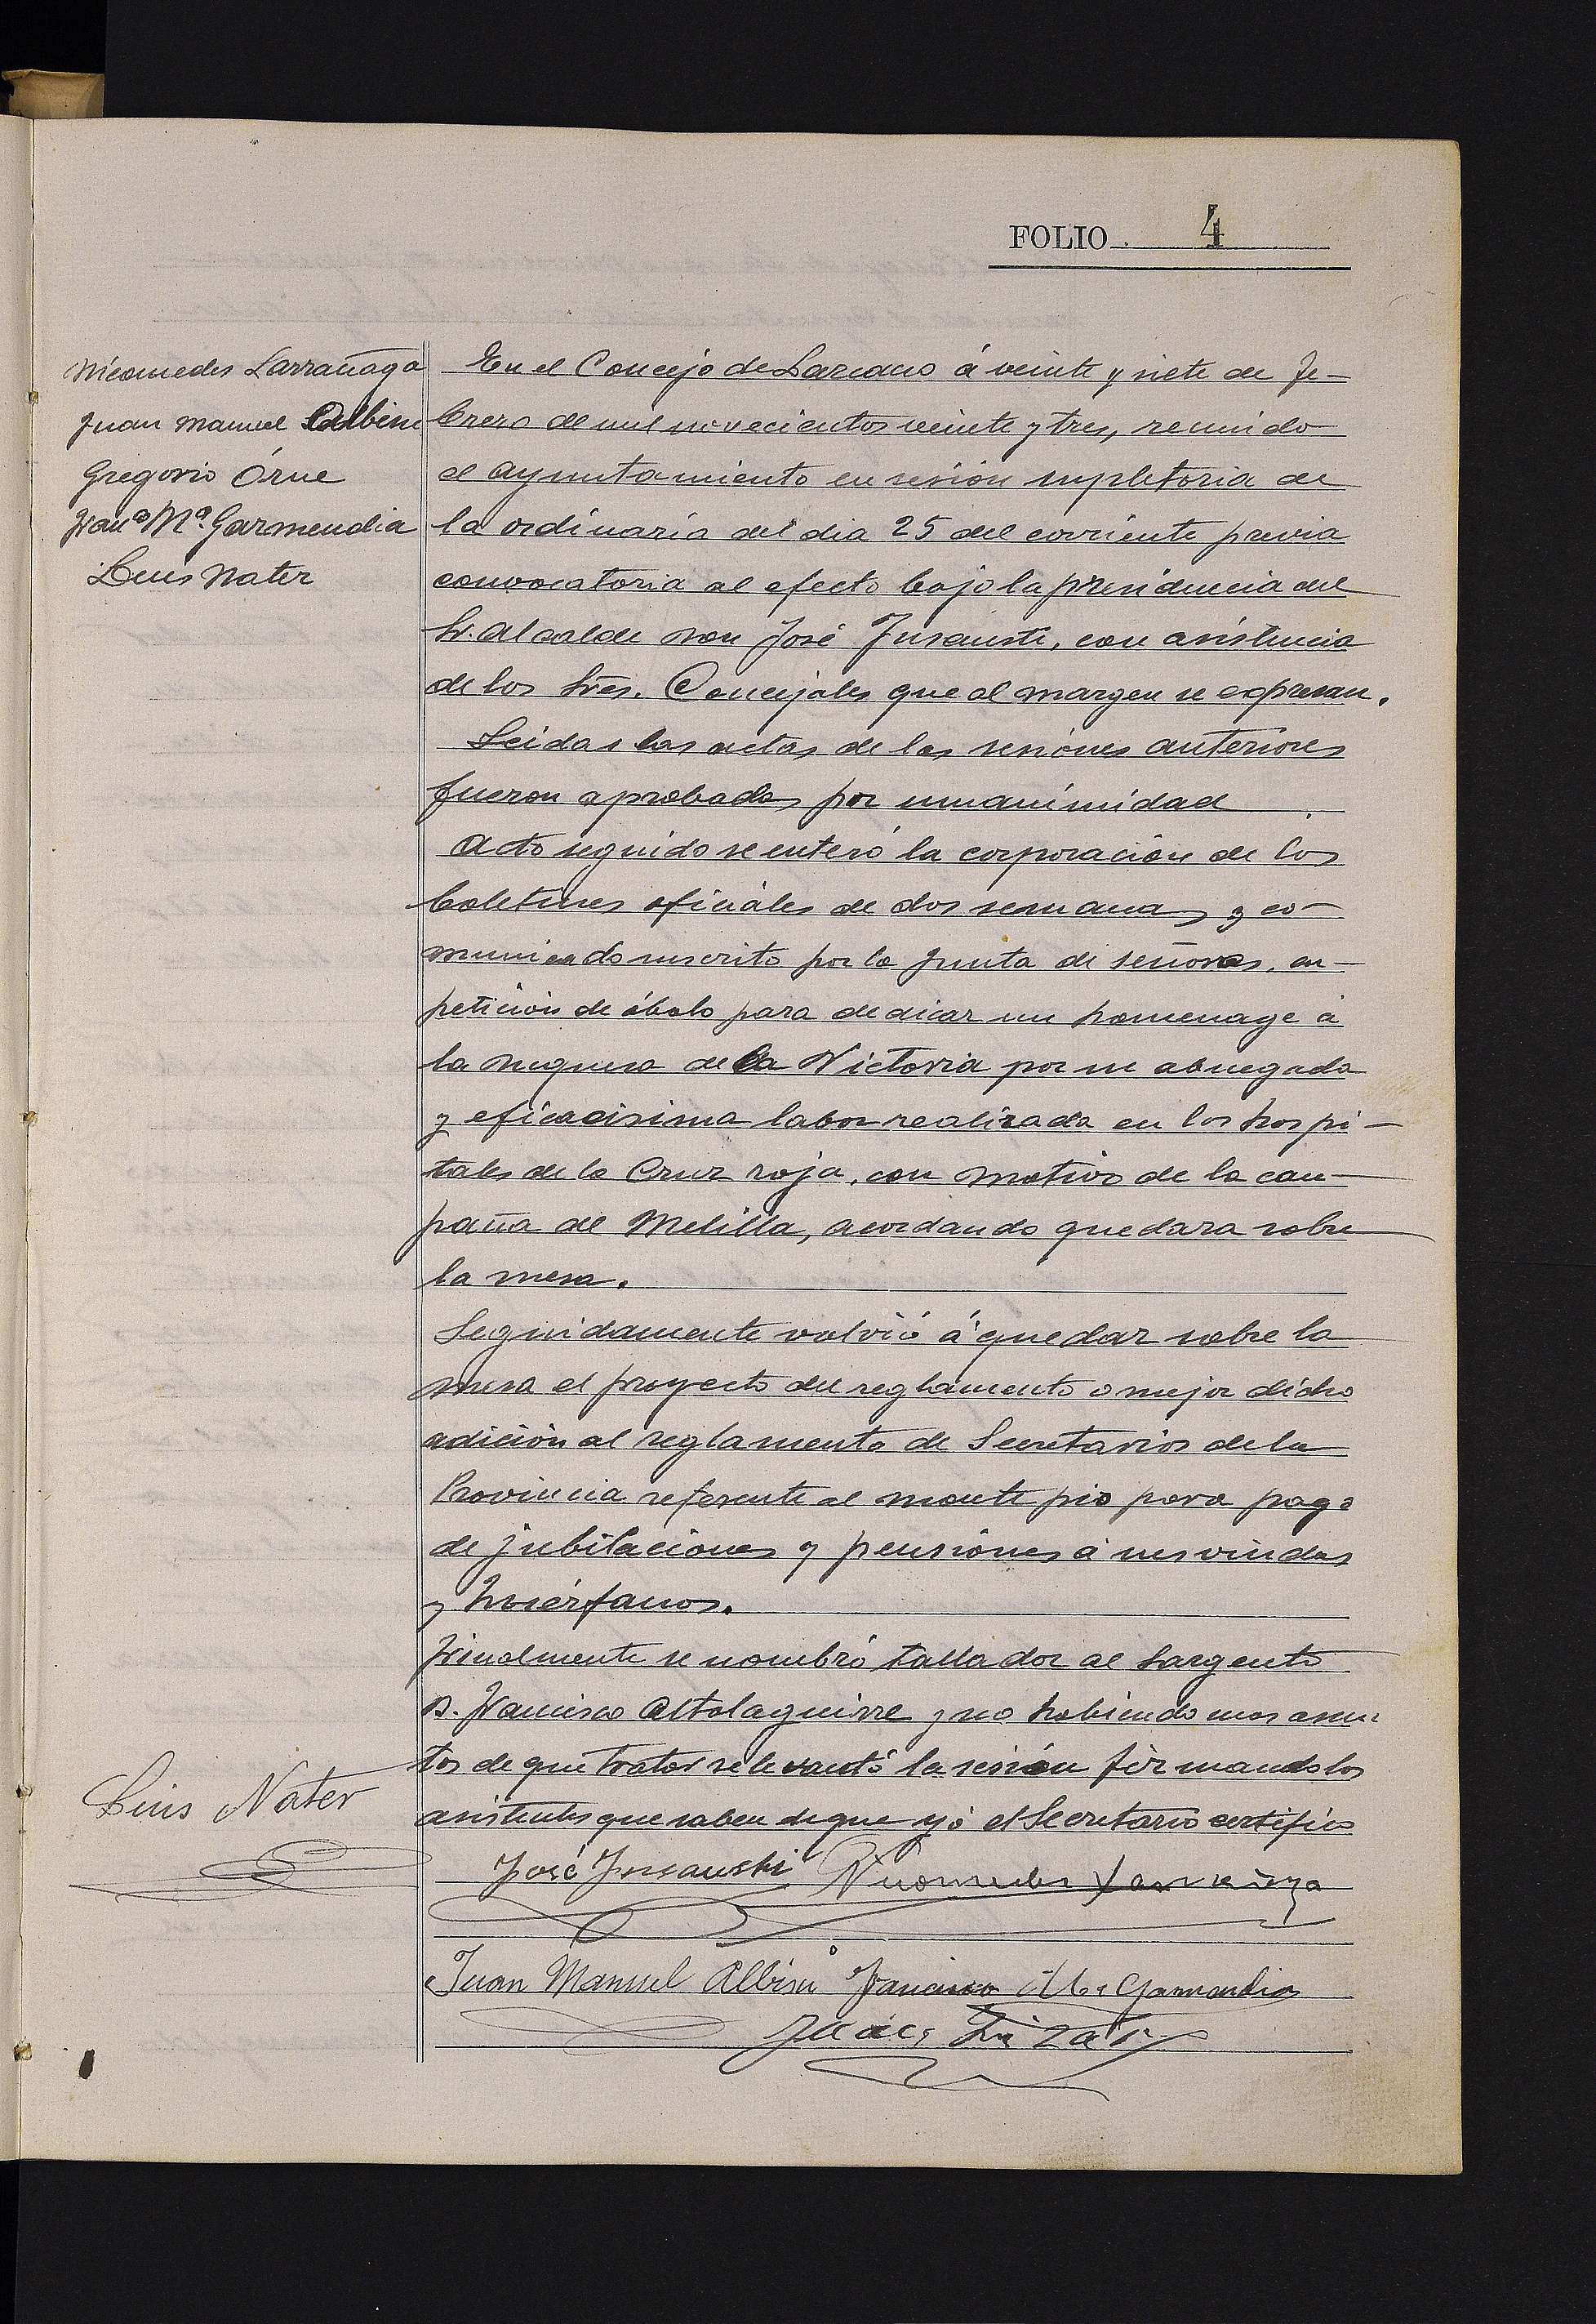 FOLIO 4
Nicomedes Larrañaga
Juan Manuel Albisu
Gregorio Órue
Franco Mª. Garmendia
Luis Nater
En el Concejo de Lazcano á veinte y siete de Fe-
brero de mil novecientos veinte y tres, reunido
el ayuntamiento en sesión supletoria de
la ordinaria del dia 25 del corriente previa
convocatoria al efecto bajo la presidencia del
Sr. Alcalde Don José Insausti, con asistencia
de los Sres. Concejales que al margen se expresan.
Leidas las actas de las sesiones anteriores
fueron aprobadas por unanimidad.
Acto seguido se enteró la corporación de los
boletines oficiales de dos semanas y co-
municado suscrito por la Junta de señoras, en
petición de óbolo para dedicar un homenage á
la Duquesa de la Victoria por su abnegada
y eficacisima labor realizada en los hospi-
tales de la Cruz roja, con motivo de la cam-
paña de Melilla, acordando quedara sobre
la mesa.
Seguidamente volvió á quedar sobre la
mesa el proyecto del reglamento o mejor dicho
adición al reglamento de Secretarios de la
Provincia referente al monte pio para pago
de jubilaciones y pensiones á sus viudas
y huérfanos.
Finalmente se nombró tallador al Sargento
D. Francisco Altolaguirre y no habiendo mas asun-
tos de que tratar se levantó la sesión firmando los
asistentes que saben de que yó el Secretario certifico
Luis Nater
José Insausti Nicomedes Larrañaga
Juan Manuel Albisu Francisco Mª Garmendia